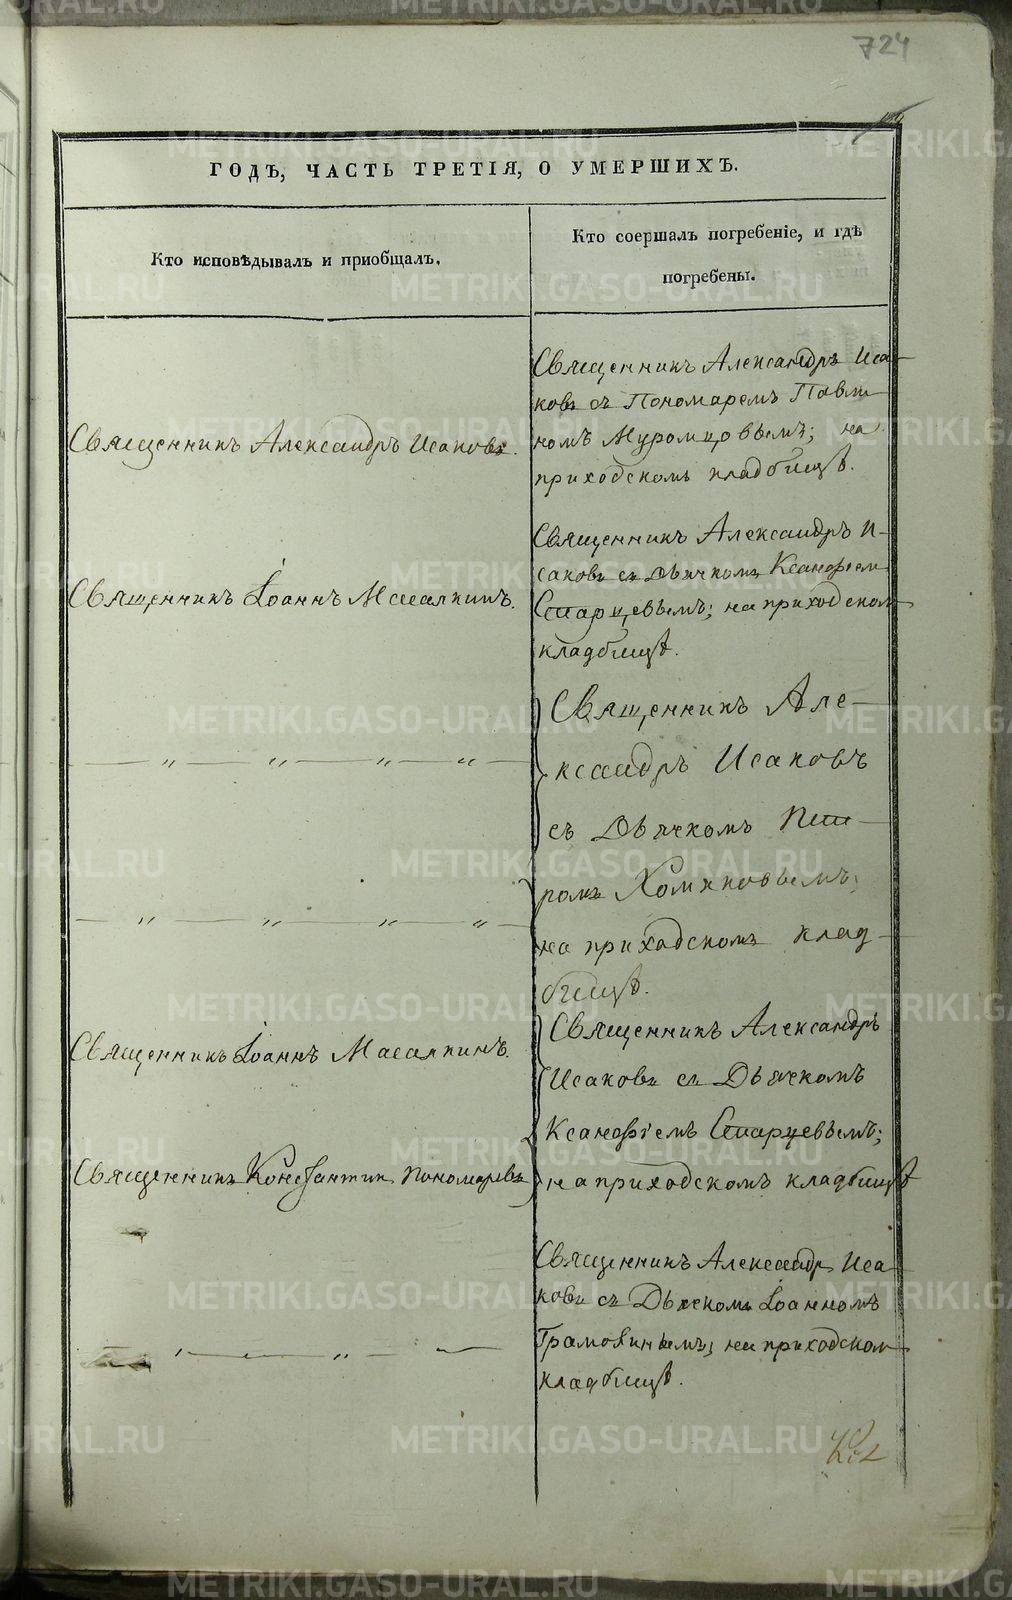 724
ГОДЪ, ЧАСТЬ ТРЕТІЯ, О УМЕРШИХЪ.
Кто исповѣдывалъ и приобщалъ.
Кто соершалъ погребеніе, и гдѣ
погребены.
Священникъ Александръ Исаковъ.
Священникъ Александръ Иса-
ковъ съ Пономаремъ Павли-
номъ Муромцовымъ; на
приходскомъ кладбищѣ.
Священникъ Іоаннъ Масалкинъ.
Священникъ Александръ И-
саковъ съ Дьячкомъ Ксанофіем
Старцевымъ; на приходском
кладбищѣ.
— „ — „ — „ — „ —
Священникъ Але-
ксандръ Исаковъ
съ Дьячкомъ Пет-
ромъ Хомяковымъ;
на приходскомъ клад-
бищѣ.
— „ — „ — „ — „ —
Священникъ Іоаннъ Масалкинъ.
Священникъ Константин Пономаревъ
Священникъ Александръ
Исаковъ съ Дьячкомъ
Ксанофіемъ Старцевымъ;
на приходскомъ кладбищѣ
— „ — „ —
Священникъ Александр Иса-
ковъ съ Дьячкомъ Іоанномъ
Грамолинымъ; на приходском
кладбищѣ.
METRIKI.GASO-URAL.RU